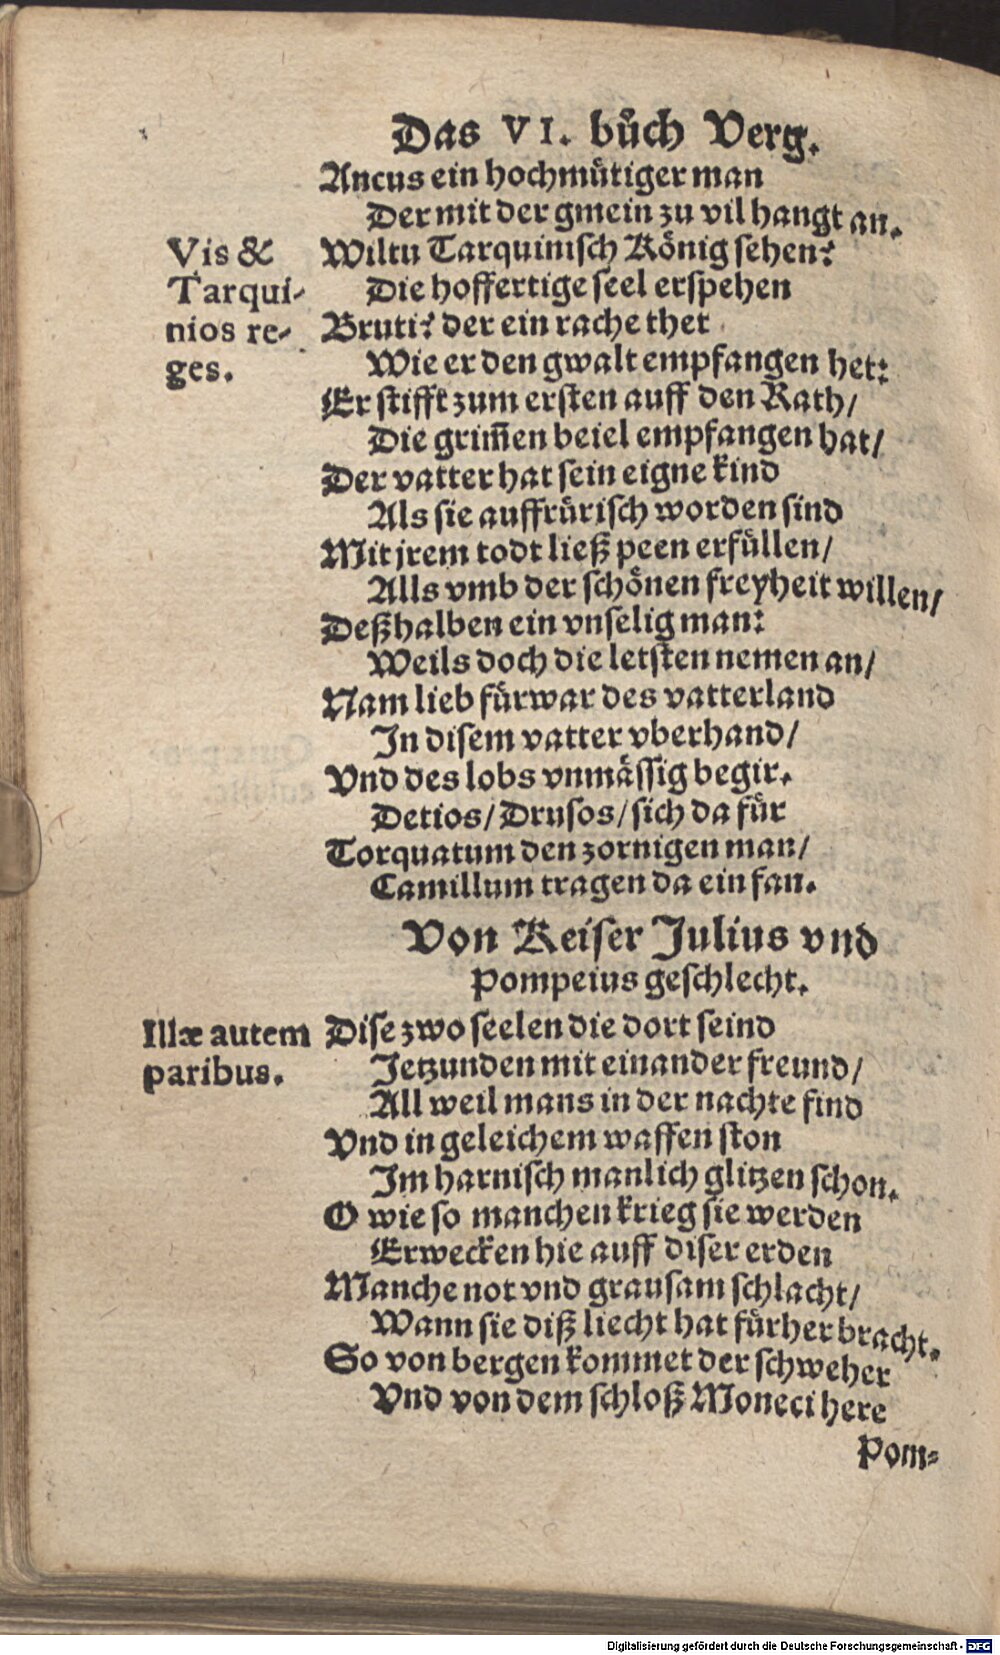 Das VI. bůch Verg.
Ancus ein hochmütiger man
Der mit der gmein zu vil hangt an.
Vis &
Tarqui-
nios re-
ges.
Wiltu Tarquinisch König sehen?
Die hoffertige seel erspehen
Bruti? der ein rache thet
Wie er den gwalt empfangen het:
Er stifft zum ersten auff den Rath/
Die grim̃en beiel empfangen hat/
Der vatter hat sein eigne kind
Als sie auffrürisch worden sind
Mit jrem todt ließ peen erfüllen/
Alls vmb der schönen freyheit willen/
Deßhalben ein vnselig man:
Weils doch die letsten nemen an/
Nam lieb fürwar des vatterland
In disem vatter vberhand/
Vnd des lobs vnmässig begir.
Detios/ Drusos/ sich da für
Torquatum den zornigen man/
Camillum tragen da ein fan.
Von Keiser Julius vnd
Pompeius geschlecht.
Illæ autem
paribus.
Dise zwo seelen die dort seind
Jetzunden mit einander freund/
All weil mans in der nachte find
Vnd in geleichem waffen ston
Im harnisch manlich glitzen schon.
O wie so manchen krieg sie werden
Erwecken hie auff diser erden
Manche not vnd grausam schlacht/
Wann sie diß liecht hat fürher bracht.
So von bergen kommet der schweher
Vnd von dem schloß Moneci here
Pom-
Digitalisierung gefördert durch die Deutsche Forschungsgemeinschaft - DFG